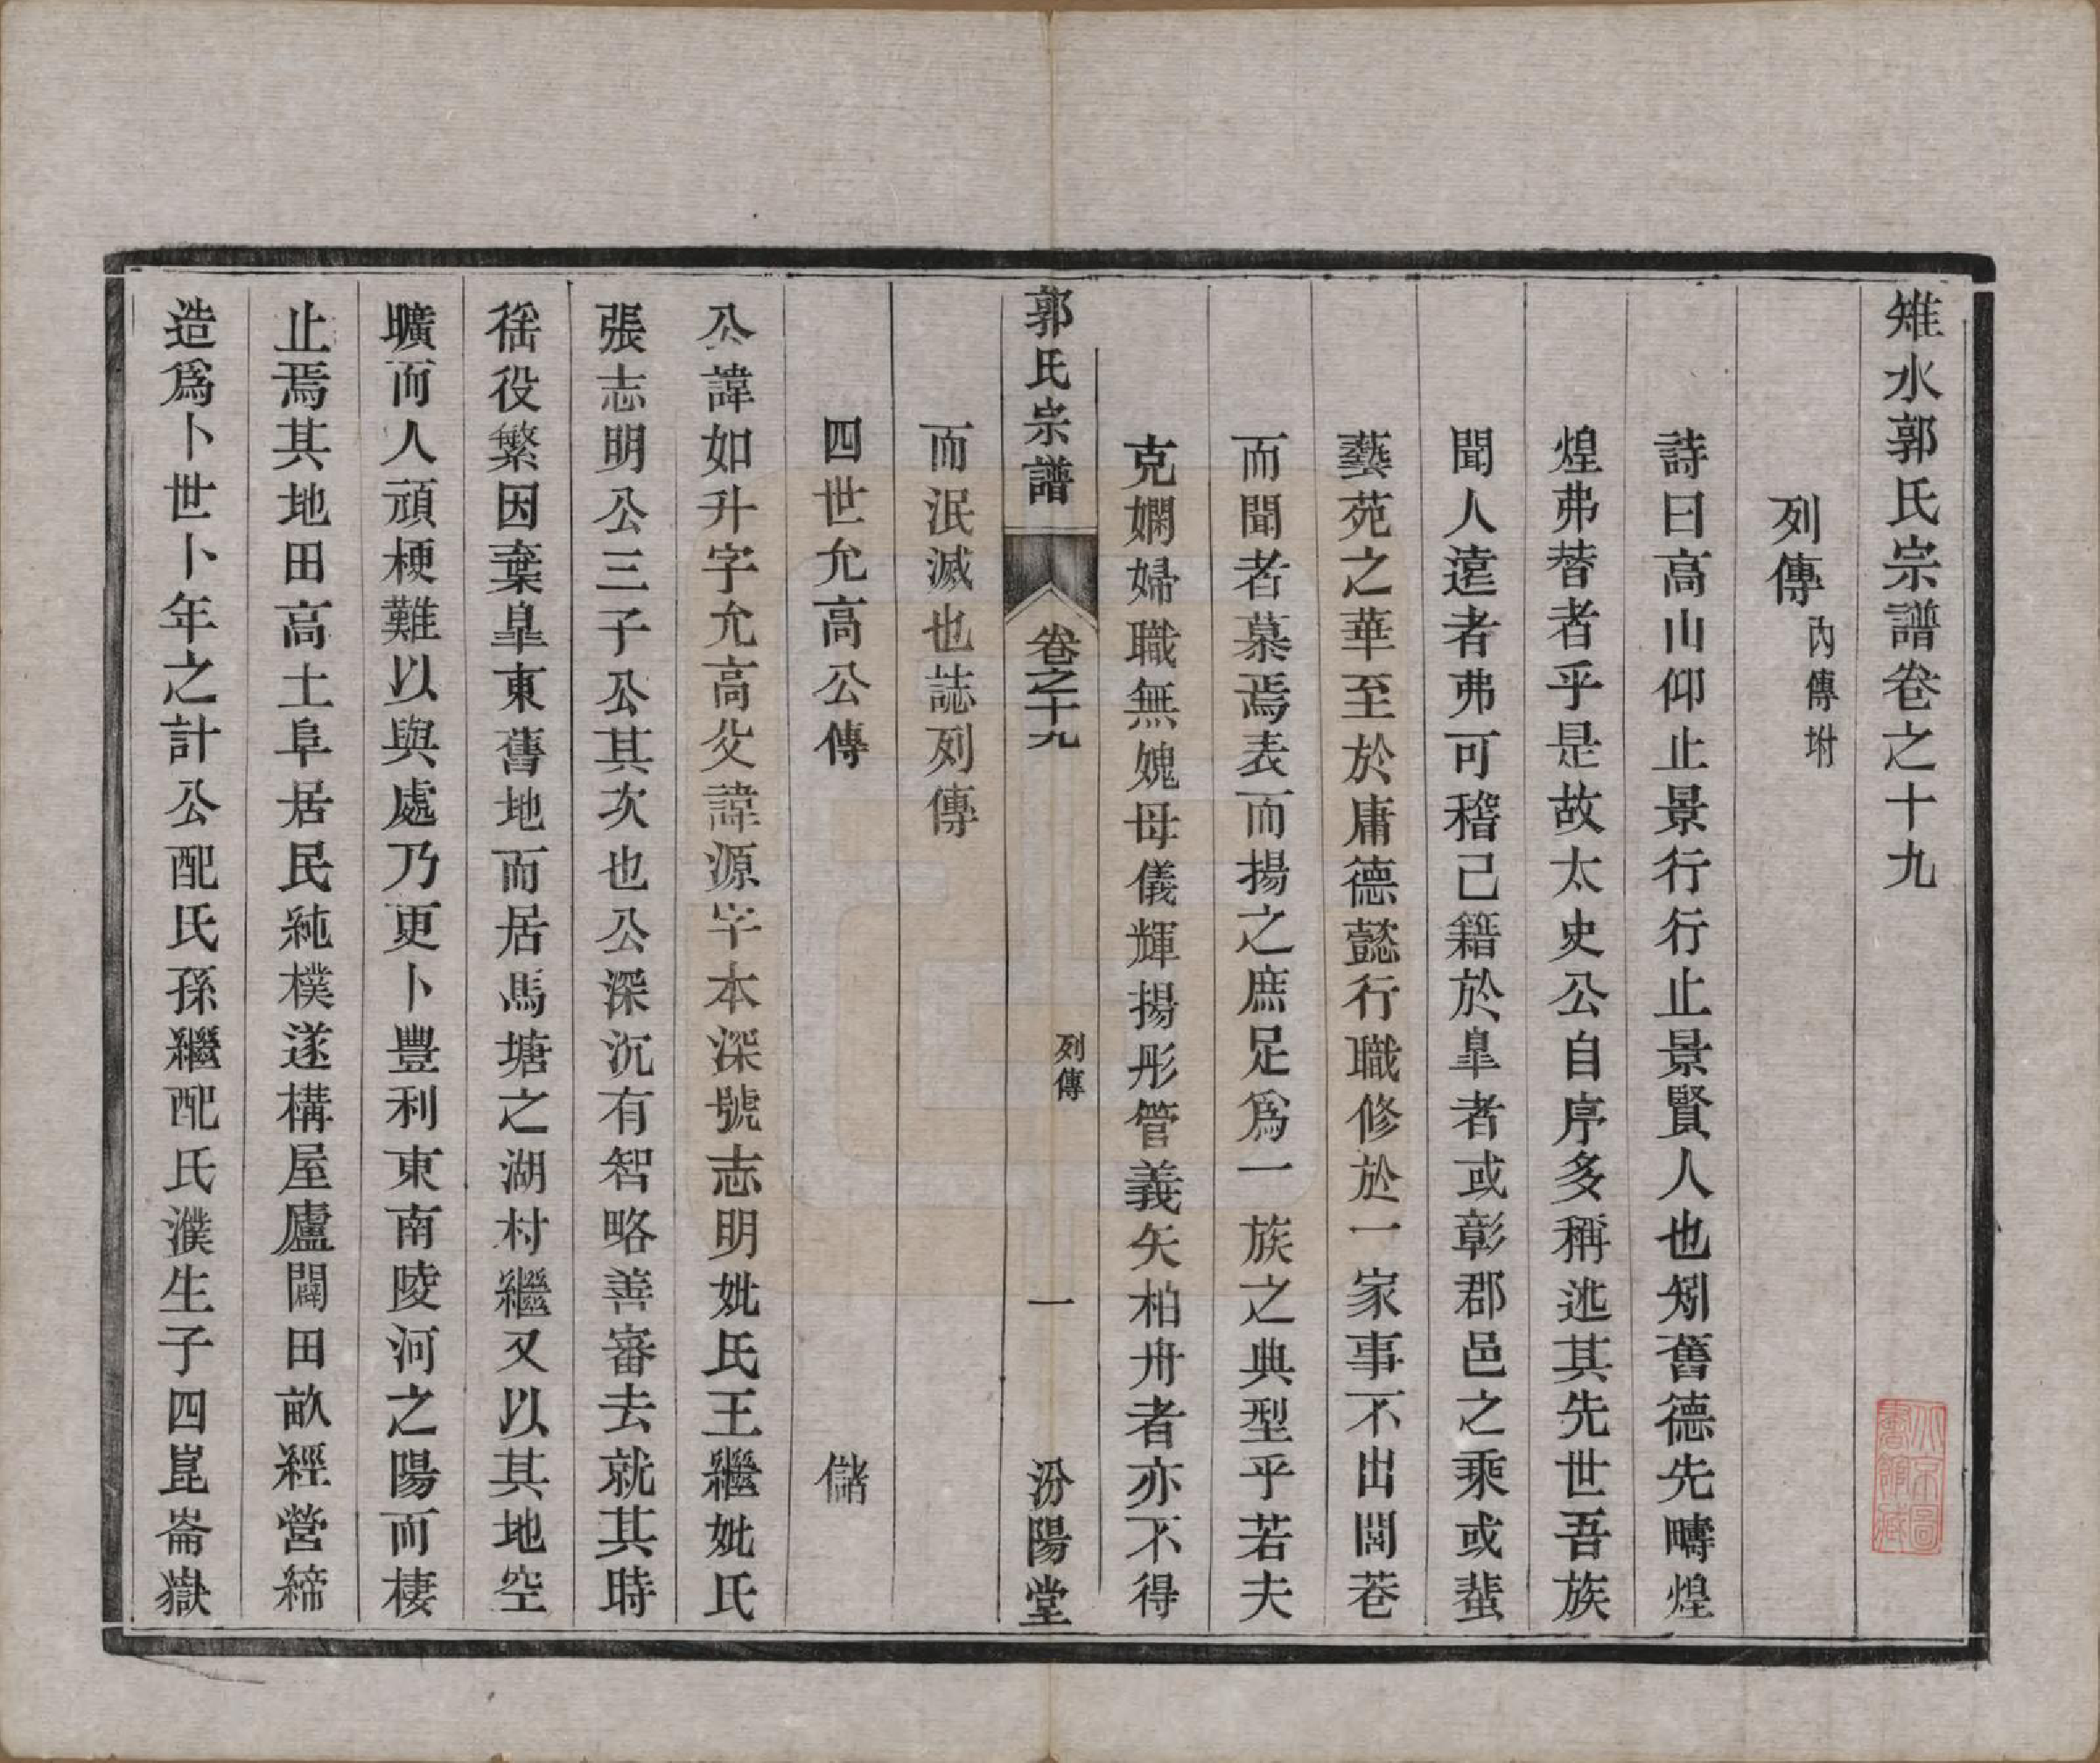 雉水郭氏宗譜卷之十九
列傳 內傳坿
詩曰高山仰止景行行止景賢人也矧舊德先疇煌
煌弗替者乎是故太史公自序多稱述其先世吾族
聞人遠者弗可稽已籍於臯者或彰郡邑之乘或蜚
藝苑之華至於庸德懿行職修於一家事不出閭巷
而聞者慕焉表而揚之庶足爲一族之典型乎若夫
克嫻婦職無媿母儀輝揚彤管義矢柏舟者亦不得
郭氏宗譜 卷之十九 列傳 一 汾陽堂
而泯滅也誌列傳
四世允高公傳 儲
公諱如升字允高父諱源字本深號志明妣氏王繼妣氏
張志明公三子公其次也公深沉有智略善審去就其時
徭役繁因棄臯東舊地而居馬塘之湖村繼又以其地空
曠而人頑梗難以與處乃更卜豐利東南陵河之陽而棲
止焉其地田高土阜居民純樸遂構屋廬闢田畝經營締
造爲卜世卜年之計公配氏孫繼配氏濮生子四崑崙嶽
北京圖
書館藏